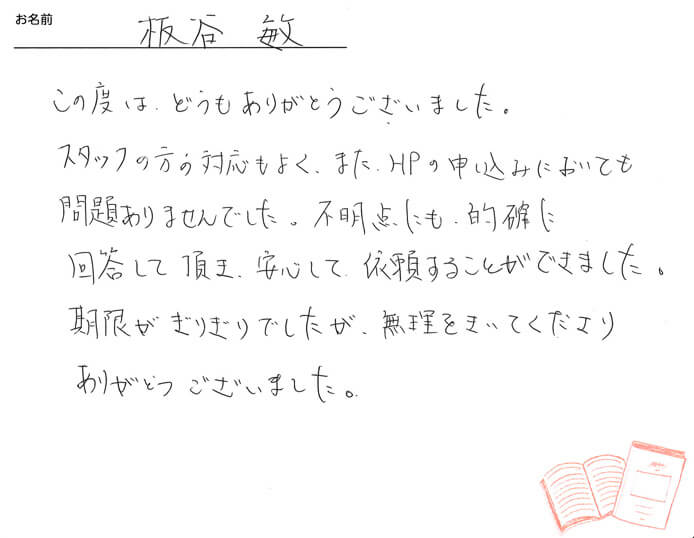 お名前 板谷 敏
この度は、どうもありがとうございました。
スタッフの方の対応もよく、また、HPの申込みにおいても
問題ありませんでした。不明点にも、的確に
回答して頂き、安心して、依頼することができました。
期限がぎりぎりでしたが、無理をきいてくださり
ありがとうございました。